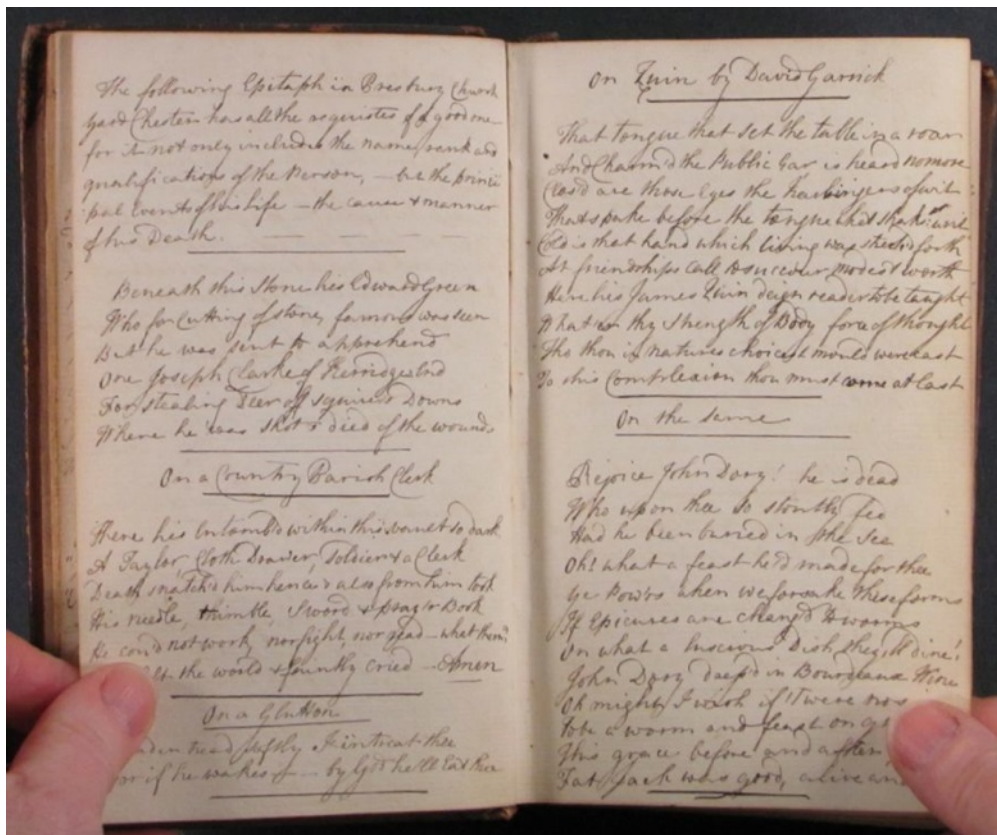 The following Epitaph in Presbury Church
yard Chester has all the requisites of a good one
for it not only includes the name, rank and
qualifications of the Person, – but the princi
pal Events of his life – the cause & manner
of his Death.
Beneath this Stone lies Edward Green
Who for Cutting of stone, famous was seen
But he was sent to apprehend
One Joseph Clarke of Kerridge End
For stealing Deer of Squires Downs
Where he was shot & died of the wounds
On a Country Parish Clerk
There lies Entomb'd within this so dark
A Taylor, Cloth Drawer, Soldier & a Clerk
Death snatch'd him hence & also from him took
His needle, thimble, Sword & pray'r Book
He cou'd not work, nor fight, nor read – what then?
the world & faintly cried – Amen
On a Glutton
tread softly I intreat thee
if he wakes – by G-d he'll Eat thee
On Quin by David Garrick
That tongue that set the table in a roar
And Charm'd the Public Ear is heard no more
Clos'd are those Eyes the harbingers of wit
That spake before the tongue what Shaks:r writ
Cold is that hand which living was stretch'd forth
At friendships call to succour modest worth
Here lies James Quin deign reader to be taught
What e'er thy strength of Body force of thought
Tho thou in natures choicest mould were cast
To this Complexion thou must come at last
On the same
Rejoice John Dory! he is dead
Who upon thee so stoutly fed
Had he been buried in the Sea
Oh! what a feast he'd made for thee
Ye Pow'rs when we forsake these forms
If Epicures are chang'd to worms
On what a luscious Dish they'll dine!
John Dory in Bourdeaux Wine
Oh might I wish if 'twere not
to be a worm and feast on
This grace before and after
Fat Jack was good, alive and